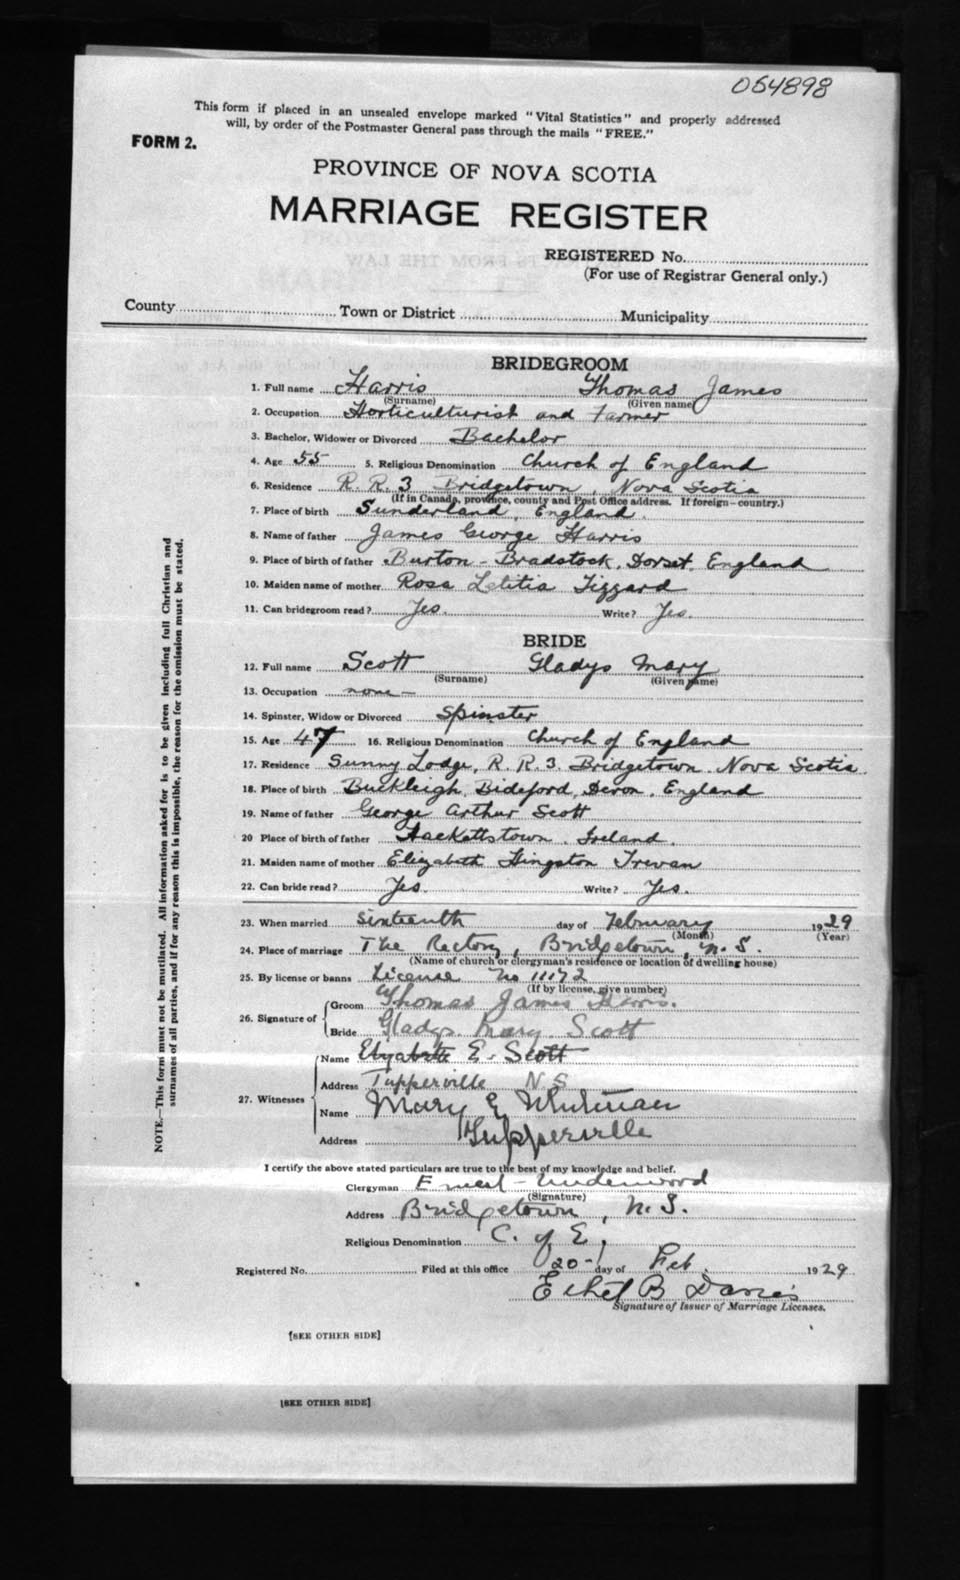 054898
This form if placed in an unsealed envelope marked "Vital Statistics" and properly addressed
will, by order of the Postmaster General pass through the mails "FREE."
FORM 2.
PROVINCE OF NOVA SCOTIA
MARRIAGE REGISTER
REGISTERED No.
(For use of Registrar General only.)
County Town or District Municipality
BRIDEGROOM
1. Full name Harris Thomas James
(Surname) (Given name)
2. Occupation Horticulturist and Farmer
3. Bachelor, Widower or Divorced Bachelor
4. Age 55 5. Religious Denomination Church of England
6. Residence R. R. 3 Bridgetown, Nova Scotia
(If in Canada, province, county and Post Office address. If foreign—country.)
7. Place of birth Sunderland, England.
8. Name of father James George Harris
9. Place of birth of father Burton - Bradstock, Dorset, England
10. Maiden name of mother Rosa Letitia Tizzard
11. Can bridegroom read? Yes. Write? Yes.
BRIDE
12. Full name Scott Gladys Mary
(Surname) (Given name)
13. Occupation none —
14. Spinster, Widow or Divorced Spinster
15. Age 47 16. Religious Denomination Church of England
17. Residence Sunny Lodge, R. R. 3. Bridgetown. Nova Scotia.
18. Place of birth Buckleigh, Bideford, Devon, England
19. Name of father George Arthur Scott
20 Place of birth of father Hackettstown, Ireland.
21. Maiden name of mother Elizabeth Hingston Trevan
22. Can bride read? Yes. Write? Yes.
23. When married sixteenth day of February 1929
(Month) (Year)
24. Place of marriage The Rectory, Bridgetown, N. S.
(Name of church or clergyman's residence or location of dwelling house)
25. By license or banns License No 11172
(If by license, give number)
26. Signature of Groom Thomas James Harris.
Bride Gladys Mary Scott
27. Witnesses Name Elizabeth E. Scott
Address Tupperville N.S
Name Mary E Whitman
Address Tupperville
I certify the above stated particulars are true to the best of my knowledge and belief.
Clergyman Ernest Underwood
(Signature)
Address Bridgetown, N. S.
Religious Denomination C. of E.
Registered No. Filed at this office 20- day of Feb. 1929
Ethel B Davies
Signature of Issuer of Marriage Licenses.
[SEE OTHER SIDE]
[SEE OTHER SIDE]
NOTE.—This form must not be mutilated. All information asked for is to be given including full Christian and
surnames of all parties, and if for any reason this is impossible, the reason for the omission must be stated.